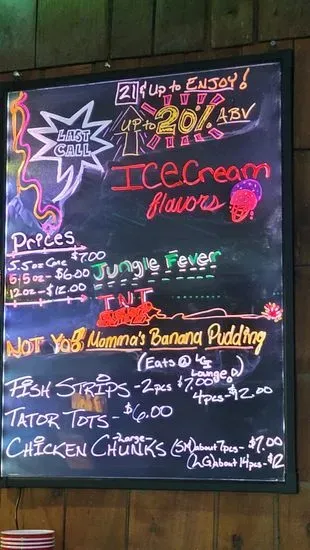 21 & Up to ENJOY!
LAST CALL
UP to 20% ABV
ICE Cream
flavors
Prices
5.5oz Cone $7.00
5.5oz - $6.00
12oz - $12.00
Jungle Fever
TNT
NOT Yo Momma's Banana Pudding
(Eats @
Lounge)
FISH STRIPS - 2pcs $7.00
4pcs - $12.00
TATOR TOTS - $6.00
Large
CHICKEN CHUNKS (SM) about 7pcs - $7.00
(LG) about 14pcs - $12